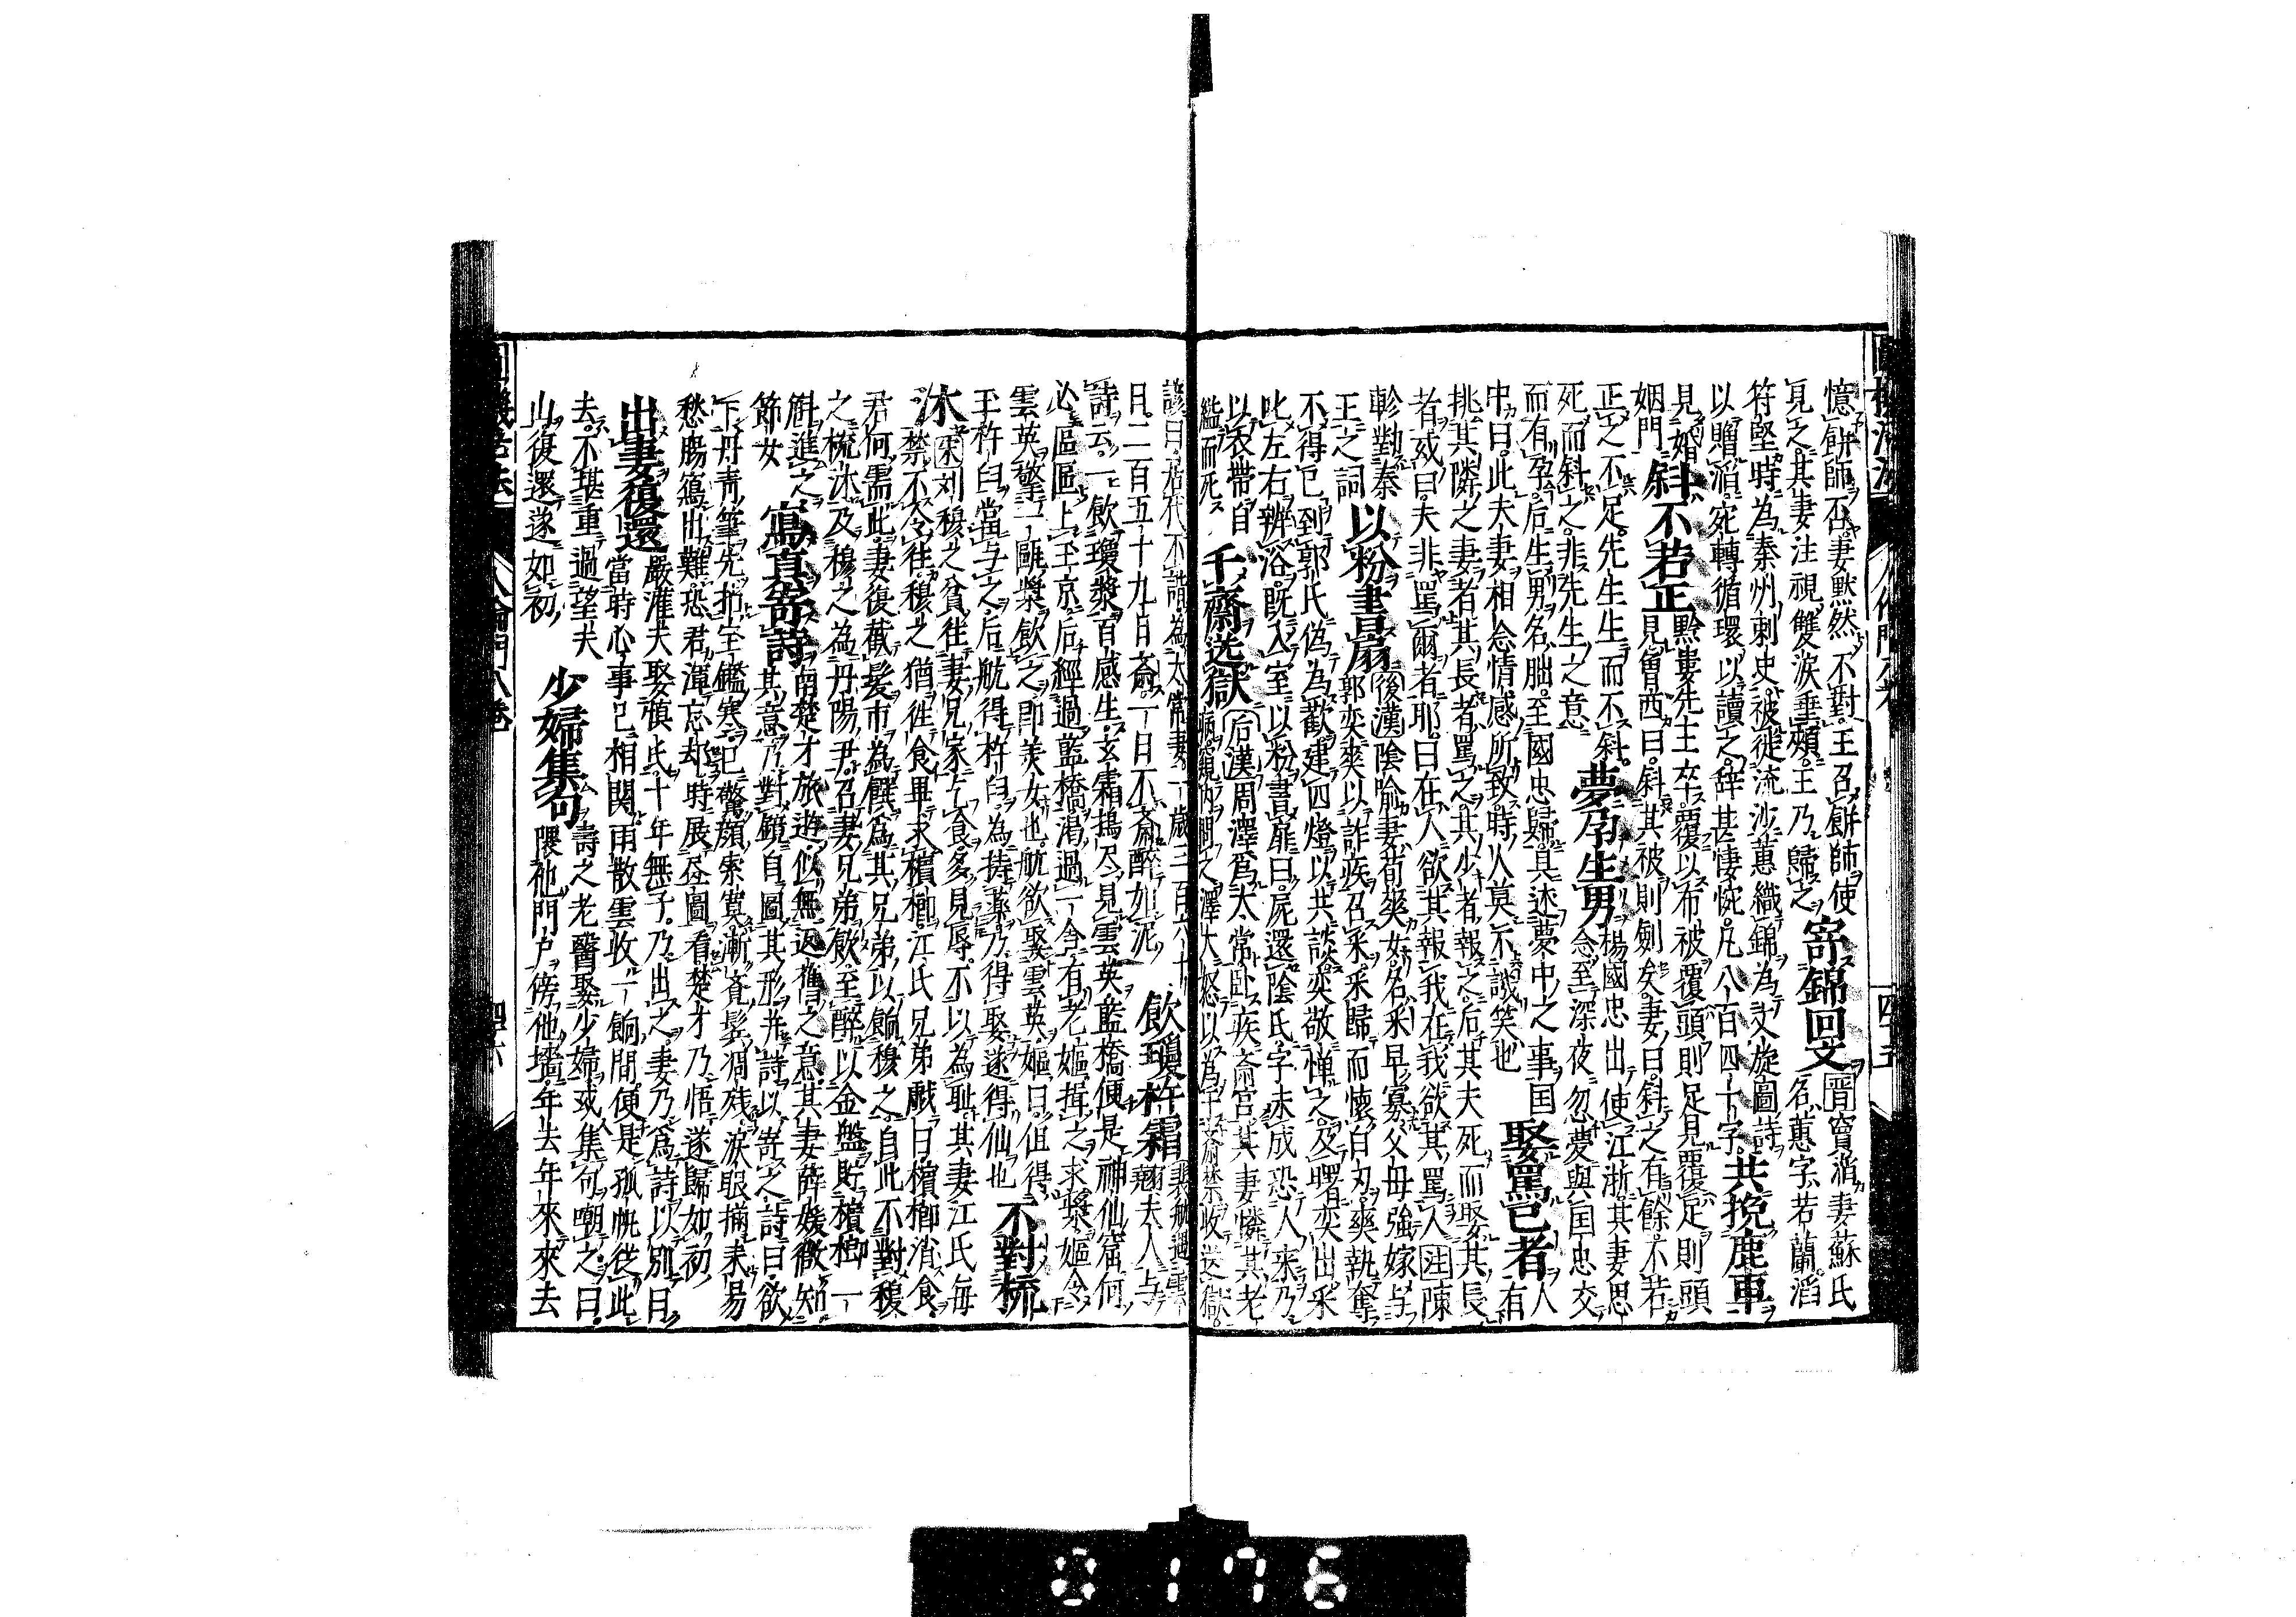 憶餅師否妻黙然不對王召餅師使
見之其妻注視雙淚垂頰王乃歸之 寄錦回文 晋竇滔妻蘇氏
名蕙字若蘭滔
符堅時為秦州刺史被徙流沙蕙織錦為文旋圖詩
以贈滔宛轉循環以讀之辞甚悽惋凡八百四十字 共挽鹿車
見婚
姻門 斜不若正 黔婁先生卒覆以布被覆頭則足見覆足則頭
見曾西曰斜其被則斂矣妻曰斜之有餘不若
正之不足先生生而不斜
死而斜之非先生之意 夢孕生男 楊國忠出使江浙其妻思
念至深夜忽夢與国忠交
而有孕后生男名朏至國忠歸具述夢中之事国
中曰此夫妻相念情感所致時人莫不譏笑也 娶罵己者 人
有
挑其隣之妻者其長者罵之其少者報之后其夫死而娶其長
者或曰夫非罵爾者耶曰在人欲其報我在我欲其罵人 注陳
軫勸秦
王之詞 以粉書扇 後漢陰瑜妻荀爽女名采早寡父母強嫁与
郭奕爽以詐疾召采采歸而懷白刃爽執奪
不得已到郭氏偽為歡建四燈以共談奕敬憚之及曙奕出采
叱左右辨浴既入室以粉書扉曰屍還陰氏字未成恐人来乃
以衣帶自
縊而死 千齋送獄 后漢周澤為太常臥疾斎宮其妻憐其老
病窺内問之澤大怒以為干斎禁收送獄
諺曰居代不諧為太常妻一歳三百六十
日二百五十九日斎一日不斎醉如泥 飲瓊杵霜 裴航遇雲
翹夫人与
詩云一飲瓊漿百感生玄霜搗尽見雲英藍橋便是神仙窟何
必區區上玉京后經過藍橋渴過一舎有老嫗揖之求漿嫗令
雲英擎一甌漿飲之即美女也航欲娶雲英嫗曰但得
玉杵臼當与之后航得杵臼為搗藥乃得娶遂得仙也 不對梳
沐 宋刘穆之貧往妻兄家乞食多見辱不以為恥其妻江氏毎
禁不令往穆之猶徃食畢求檳榔江氏兄弟戯曰檳榔消食
君何需此妻復截髪市為饌為其兄弟以餉穆之自此不對穆
之梳沐及穆之為丹陽尹召妻兄弟飲至醉以金盤貯檳榔一
斛進之
節女 寫真寄詩 南楚才旅遊似無返舊之意其妻薛媛微知
其意乃對鏡自圖其形并詩以寄之詩曰欲
下丹靑筆先拈宝鑑寒已驚顔索寞漸覚髩凋残涙眼描来易
愁膓寫出難恐君渾忘却時展昼圖看楚才乃悟遂歸如初
出妻復還 嚴灌夫娶愼氏十年無子乃出之妻乃為詩以別曰
當時心事已相関雨散雲收一餉間便是孤帆從此
去不堪重過望夫
山復還遂如初 少婦集句 壽之老醫娶少婦或集句嘲之曰
偎他門户傍他墻年去年來來去